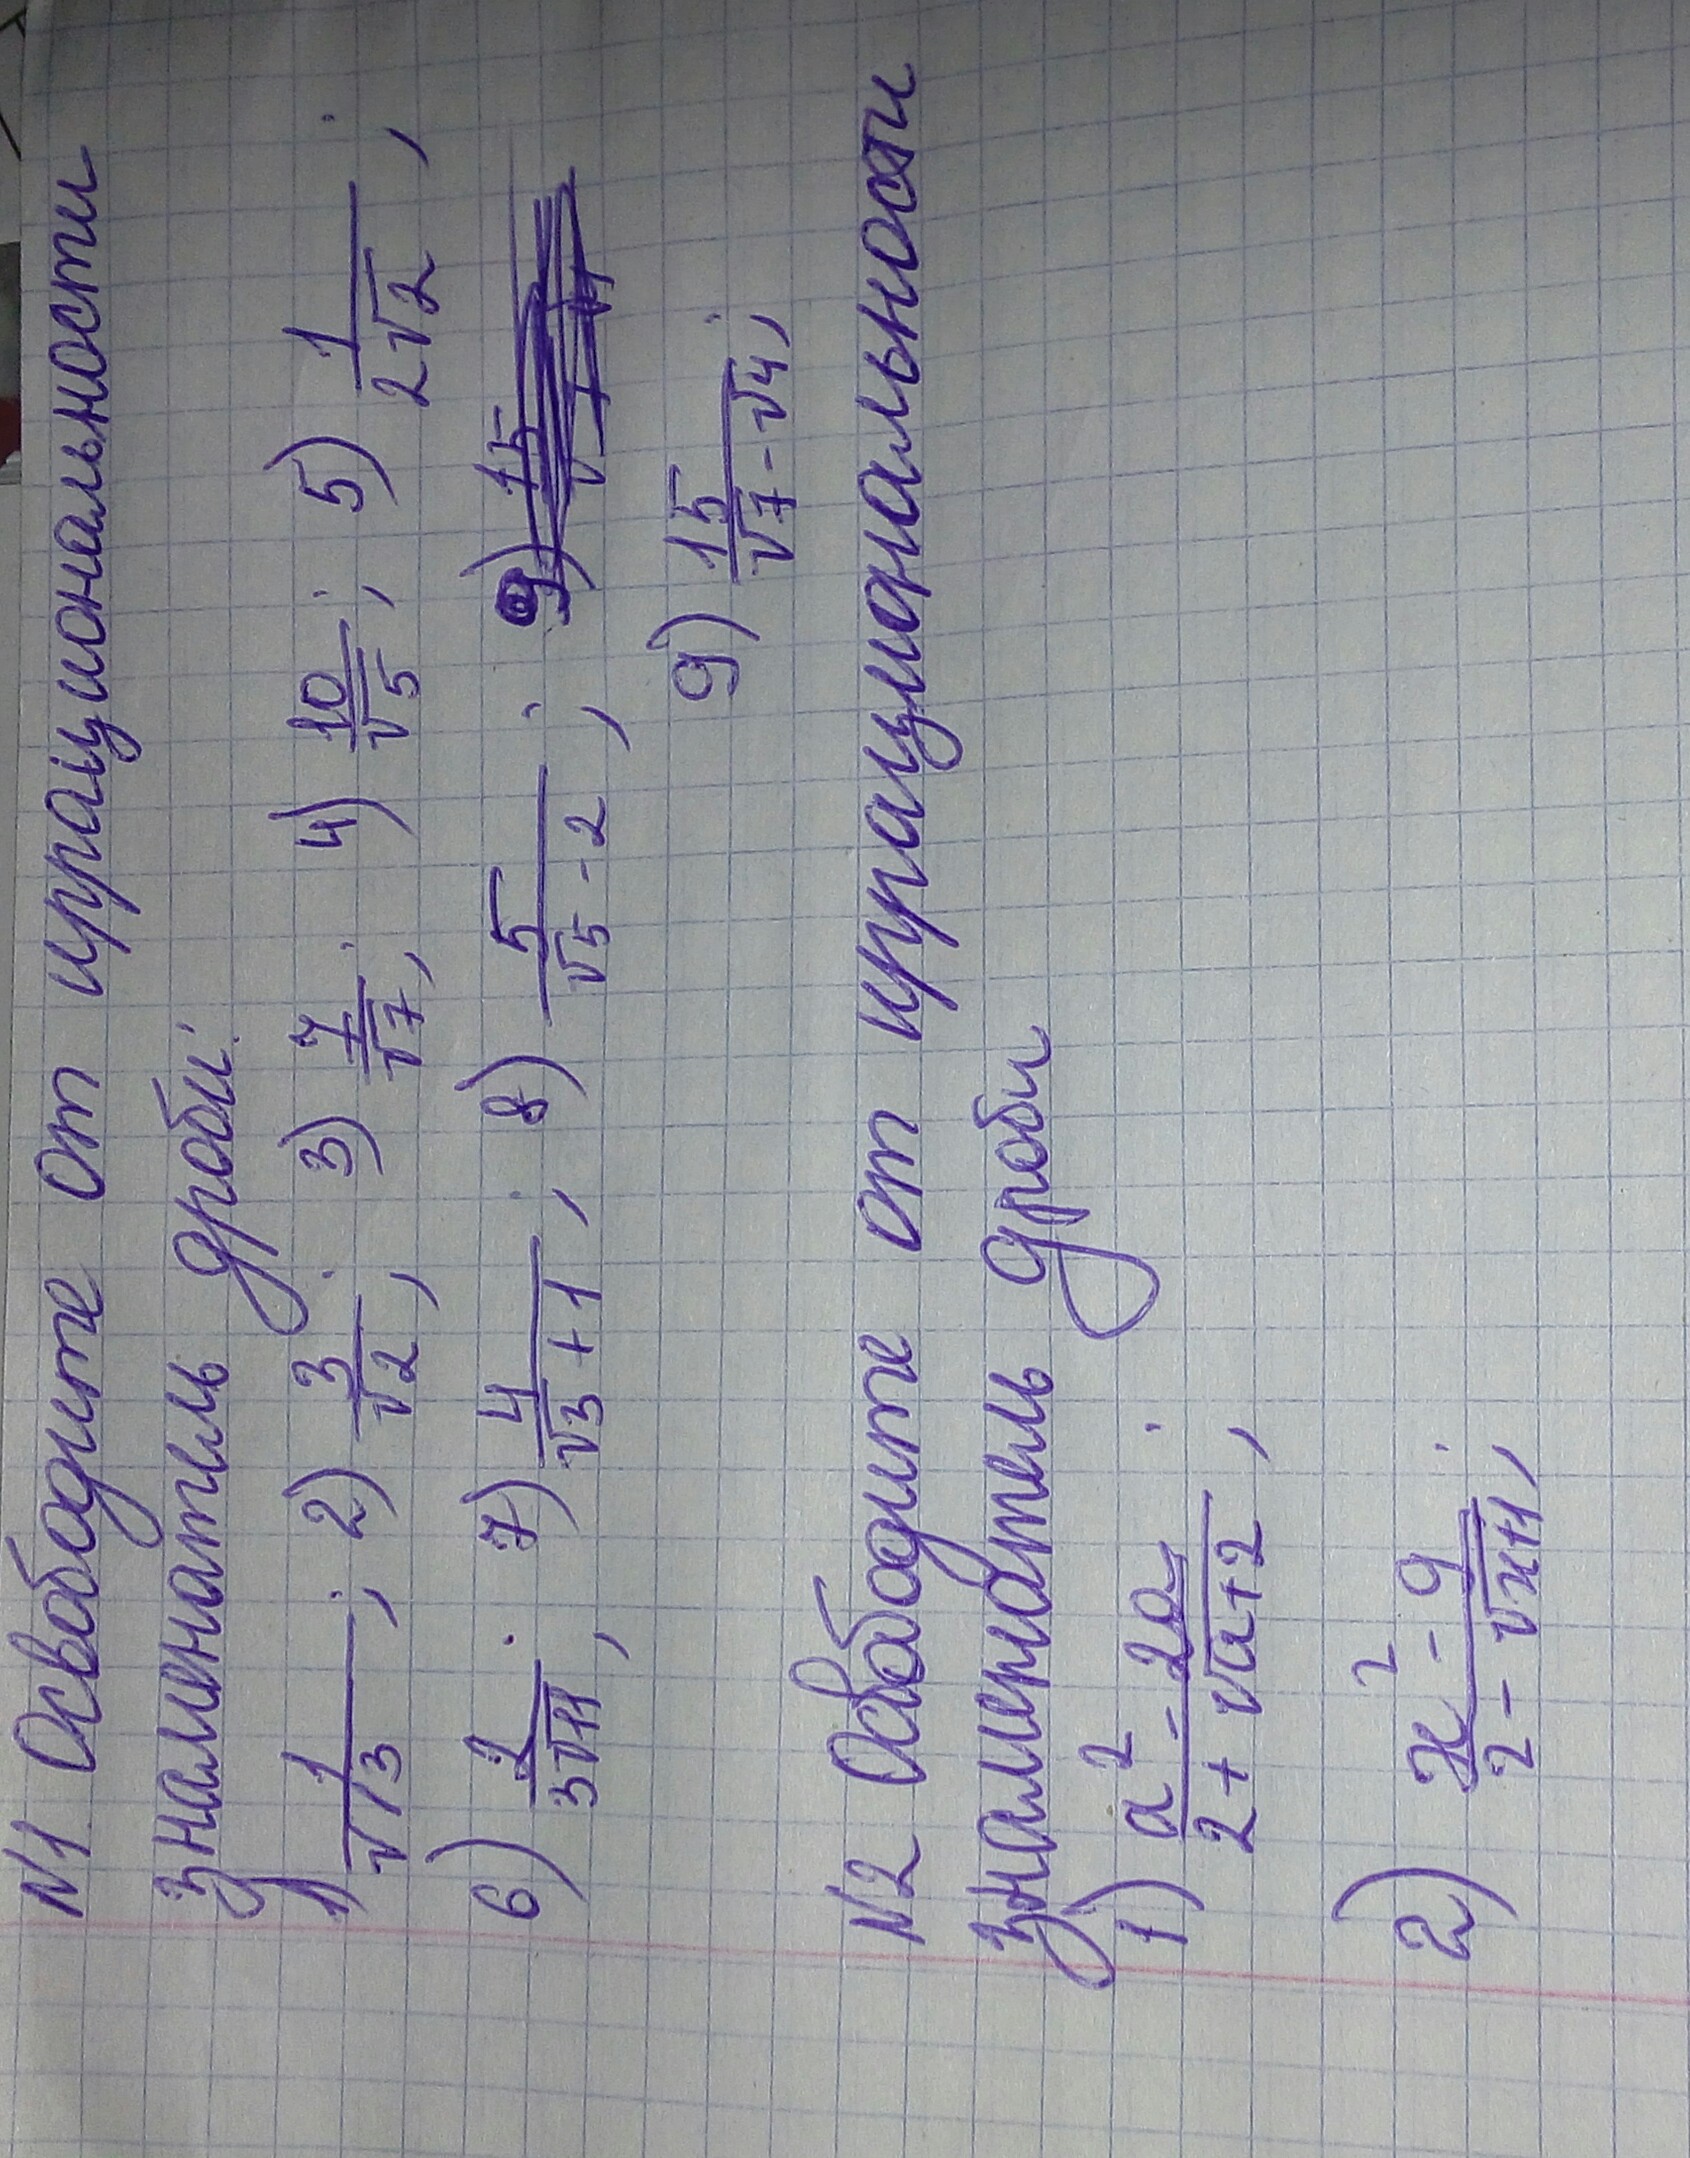 N1. Освободите от иррациональности
знаменатель дроби:
1) 1/√13; 2) 3/√2; 3) 7/√7; 4) 10/√5; 5) 1/2√2;
6) 2/3√11; 7) 4/(√3+1); 8) 5/(√5-2); 9)
9) 15/(√7-√4);
N2 Освободите от иррациональности
знаменатель дроби
1) (a²-2a)/(2+√(a+2));
2) (x²-9)/(2-√(x+1));